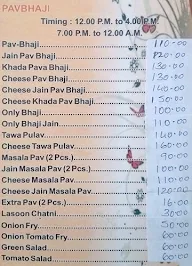 PAVBHAJI
Timing : 12.00 P.M. to 4.00 P.M.
7.00 P.M. to 12.00 A.M.
Pav-Bhaji 110-00
Jain Pav Bhaji 120-00
Khada Pava Bhaji 130-00
Cheese Pav Bhaji 130-00
Cheese Jain Pav Bhaji 140-00
Cheese Khada Pav Bhaji 150-00
Only Bhaji 100-00
Only Bhaji Jain 110-00
Tawa Pulav 140-00
Cheese Tawa Pulav 160-00
Masala Pav (2 Pcs.) 90-00
Jain Masala Pav (2 Pcs.) 100-00
Cheese Masala Pav 110-00
Cheese Jain Masala Pav 120-00
Extra Pav (2 Pcs.) 16-00
Lasoon Chatni 30-00
Onion Fry 50-00
Onion Tomato Fry 60-00
Green Salad 60-00
Tomato Salad 60-00